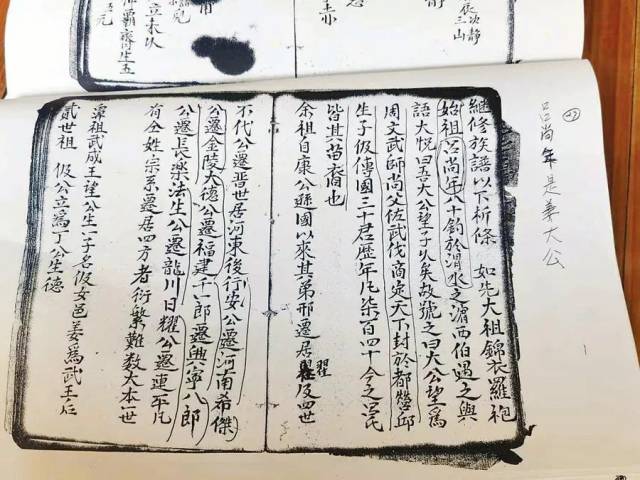 呂尚年是姜大公
継修族譜以下祈條 如先大祖錦衣羅袍
始祖呂尚年八十釣於渭水之湄西伯遇之與
語大悦曰吾大公望子久矣故號之曰大公望為
周文武師尚父佐武伐商定天下封於都營邱
生子伋傳國三十君歷年凡柒百四十今之呂氏
皆其苗裔也
余祖自康公遜國以來其弟邢遷居翟及四世
翟
不代公遷晋世居河東後行安公遷河南希傑
公遷金陵大德公遷福建千一郎遷興寧八郎
公遷長樂法生公遷龍川日耀公遷連平凡
有仝姓宗系遷居四方者衍繁難数大本一世
祖武成王望公生一子名伋女邑姜為武王后
貳世祖 伋公立為丁公生德